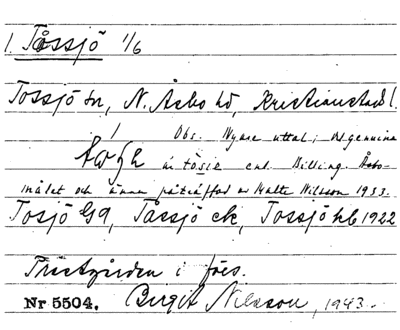 1. Tåssjö 1/6
Tossjö sn, N. Åsbo hd, Kristianstads l.
Obs. Nyare uttal; det genuina
är tösie enl. Billing. Åsbo-
målet och ännu påträffad av Malte Nilsson 1933.
Tosjö G9, Tåssjö ek, Tossjö hb 1922
i förs.
Nr 5504. Birgit Nilsson, 1943.